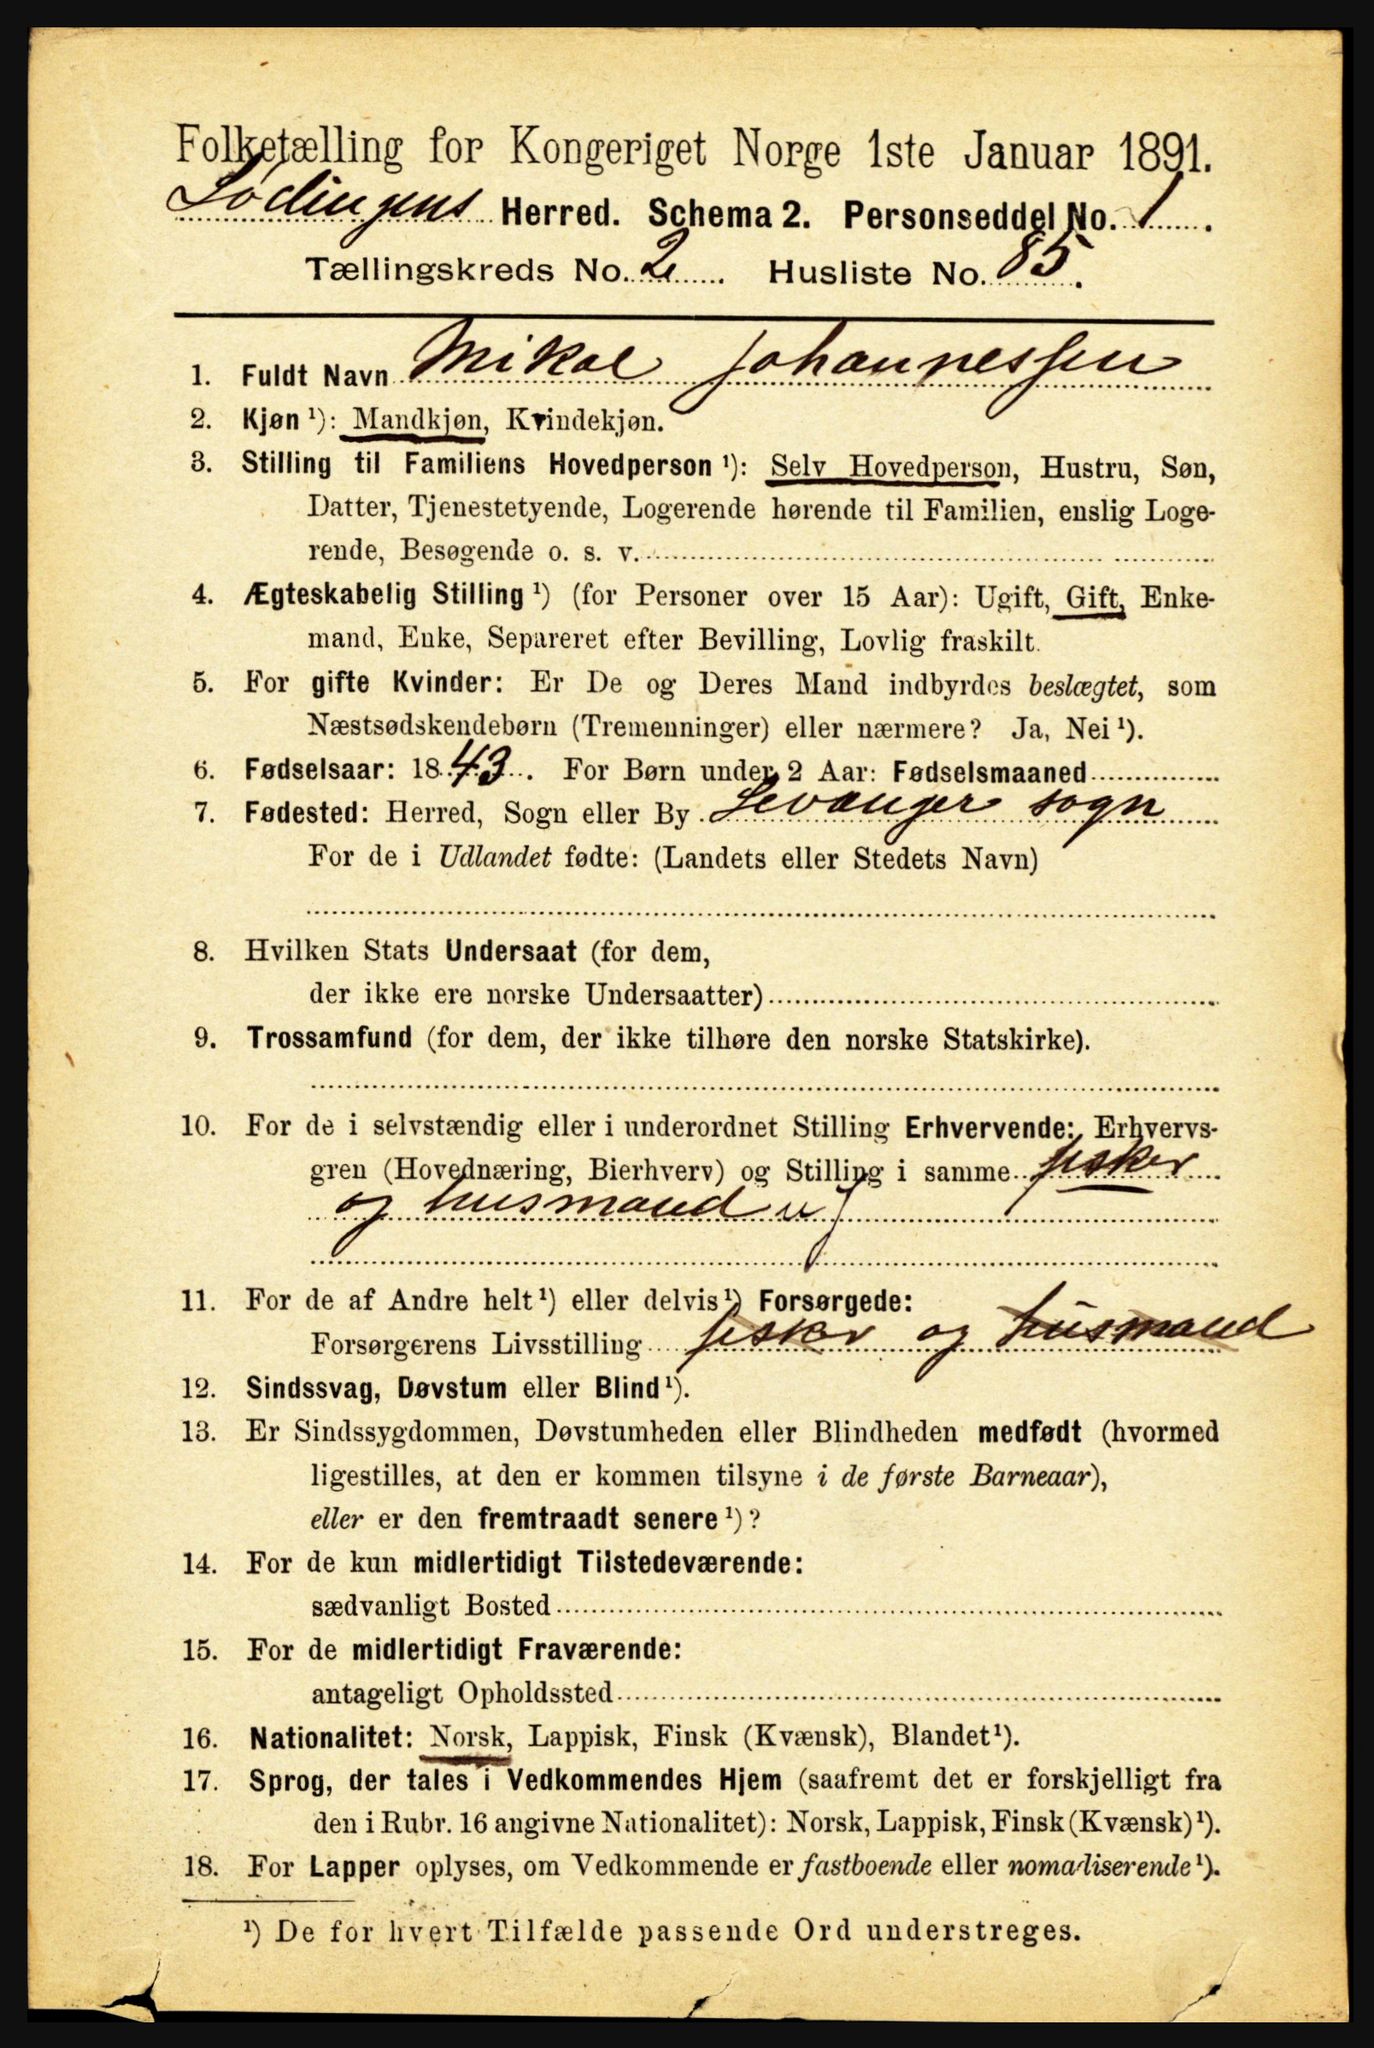 Folketælling for Kongeriget Norge 1ste Januar 1891.
Lödingens Herred. Schema 2. Personseddel No. 1.
Tællingskreds No. 2 Husliste No. 85.
1. Fuldt Navn Mikal Johannessen
2. Kjøn ¹): Mandkjøn, Kvindekjøn.
3. Stilling til Familiens Hovedperson ¹): Selv Hovedperson, Hustru, Søn,
Datter, Tjenestetyende, Logerende hørende til Familien, enslig Loge-
rende, Besøgende o. s. v.
4. Ægteskabelig Stilling ¹) (for Personer over 15 Aar): Ugift, Gift, Enke-
mand, Enke, Separeret efter Bevilling, Lovlig fraskilt.
5. For gifte Kvinder: Er De og Deres Mand indbyrdes beslægtet, som
Næstsødskendebørn (Tremenninger) eller nærmere? Ja, Nei ¹).
6. Fødselsaar: 1843. For Børn under 2 Aar: Fødselsmaaned
7. Fødested: Herred, Sogn eller By Levanger sogn
For de i Udlandet fødte: (Landets eller Stedets Navn)
8. Hvilken Stats Undersaat (for dem,
der ikke ere norske Undersaatter)
9. Trossamfund (for dem, der ikke tilhøre den norske Statskirke).
10. For de i selvstændig eller i underordnet Stilling Erhvervende: Erhvervs-
gren (Hovednæring, Bierhverv) og Stilling i samme fisker
og husmand u j
11. For de af Andre helt ¹) eller delvis ¹) Forsørgede:
Forsørgerens Livsstilling fisker og husmand
12. Sindssvag, Døvstum eller Blind ¹).
13. Er Sindssygdommen, Døvstumheden eller Blindheden medfødt (hvormed
ligestilles, at den er kommen tilsyne i de første Barneaar),
eller er den fremtraadt senere ¹)?
14. For de kun midlertidigt Tilstedeværende:
sædvanligt Bosted
15. For de midlertidigt Fraværende:
antageligt Opholdssted
16. Nationalitet: Norsk, Lappisk, Finsk (Kvænsk), Blandet ¹).
17. Sprog, der tales i Vedkommendes Hjem (saafremt det er forskjelligt fra
den i Rubr. 16 angivne Nationalitet): Norsk, Lappisk, Finsk (Kvænsk) ¹).
18. For Lapper oplyses, om Vedkommende er fastboende eller nomadiserende ¹).
¹) De for hvert Tilfælde passende Ord understreges.